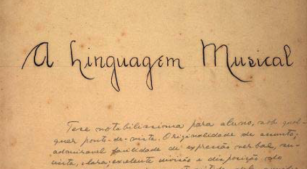 A Linguagem Musical
Tese notabilissima para aluno, sob qual-
quer ponto-de-vista. Originalidade de assunto,
admiravel facilidade de expressão verbal,
clara, excelente divisão e disposição